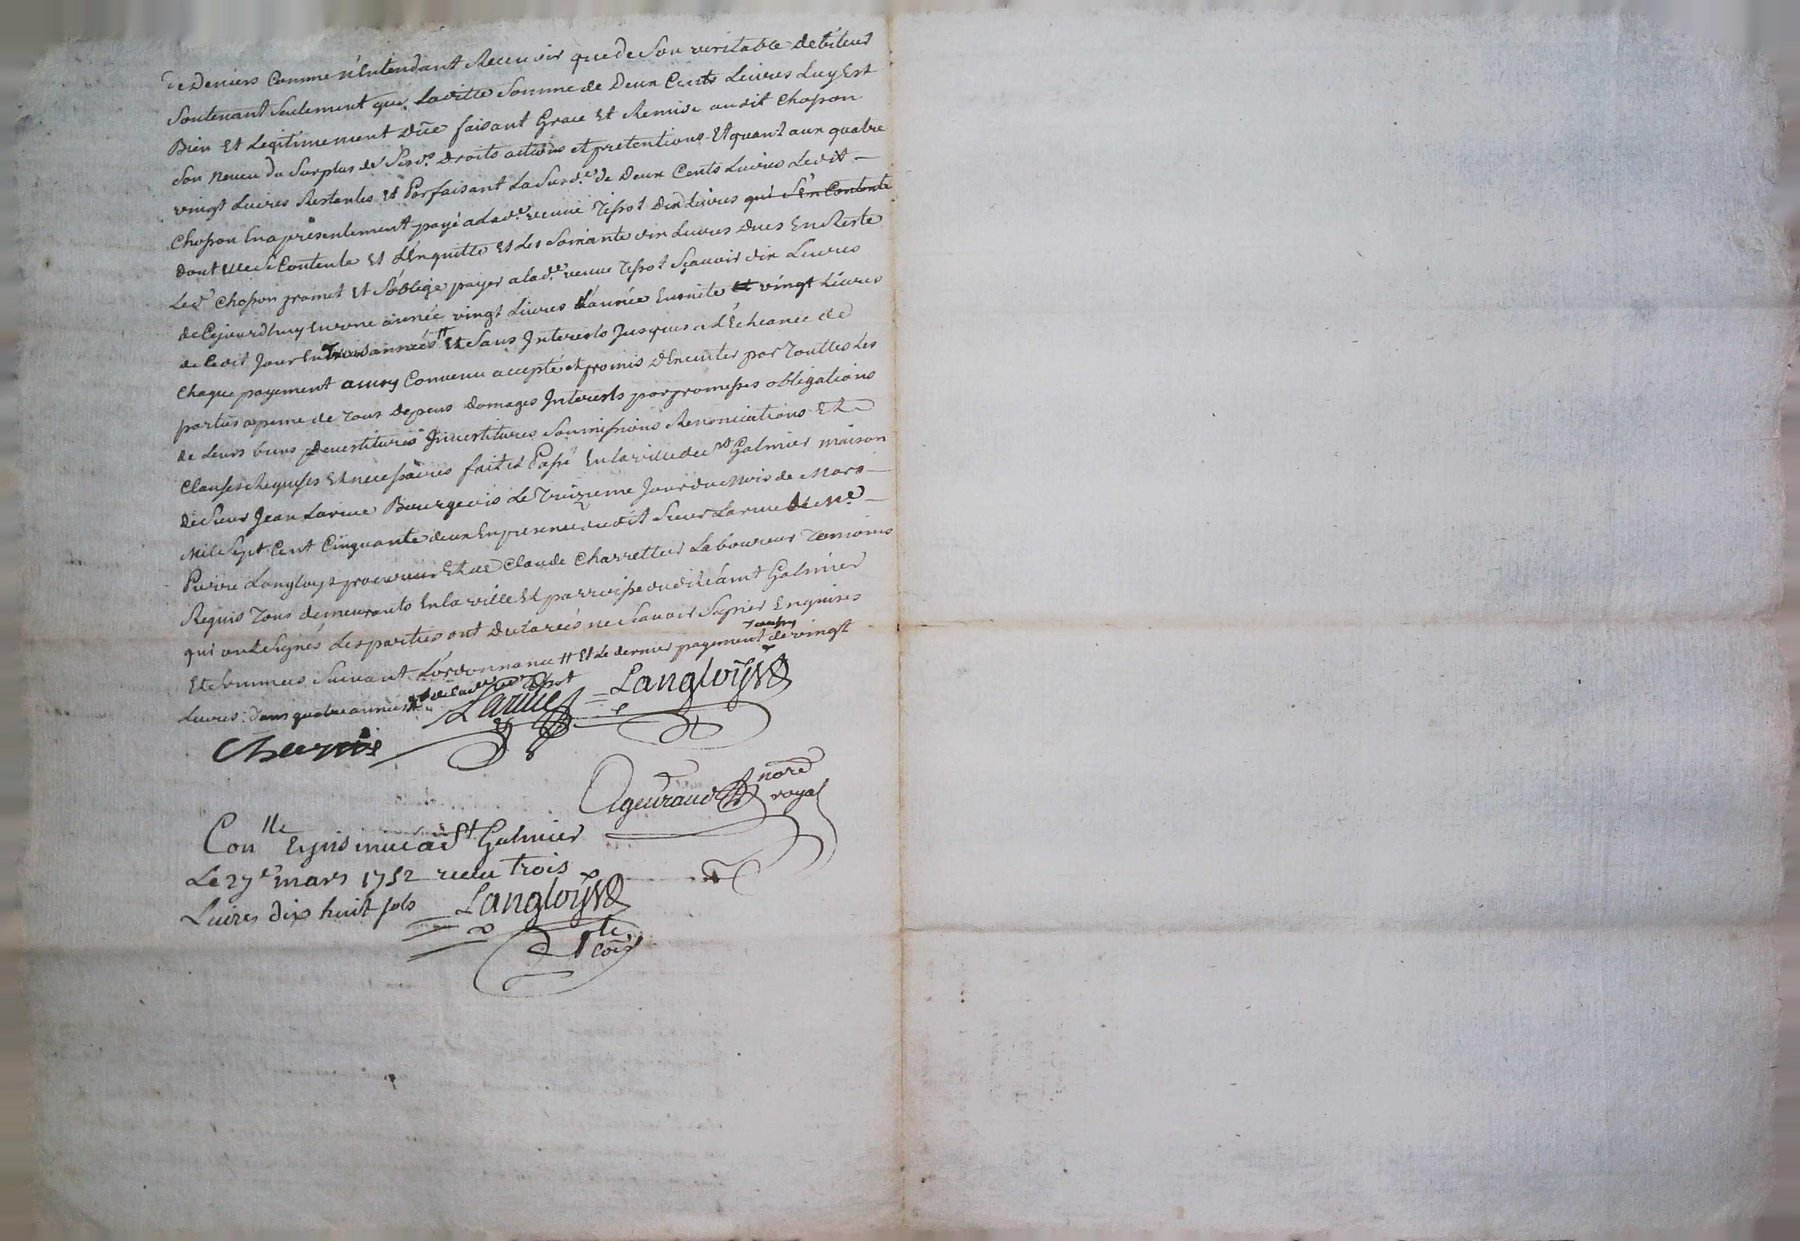 de Deniers Comme n'Entendant Recevoir que de Son veritable debiteur
Soutenant Seulement que Laditte Somme de Deux Cents Livres Luy Est
Bien Et Legitimement Düe faisant Grace Et Remise audit Chosson
Son neveu du Surplus de Sesd.s Droits actions et pretentions Et quant aux quatre
vingt Livres Restantes Et Parfaisant La Susd.e de Deux Cents Livres Ledit
Chosson En a presentement payé a Lad.e veuve Tissot Dix Livres qui S'En Contente
dont Elle Se Contente Et L'En quitte Et Les Soixante dix Livres Dues En Reste
Led.t Chosson promet Et S'oblige payer a lad.e veuve Tissot Sçavoir dix Livres
de Cejourdhuy En une année vingt Livres L'année Ensuite Et vingt Livres
de Cedit Jour En Trois années # Et Sans Interests Jusques a L'Echeance de
Chaque payement ainsy Convenu accepté et promis d'Executer par Touttes Les
parties a peine de Tous depens Domages Interests par promesses obligations
de Leurs biens Devestitures Investitures Soumissions Renonciations Et
Clauses Requises Et necessaires fait Et Passé En la ville de St Galmier maison
de Sieur Jean Larue Bourgeois Le Treizieme Jour du Mois de Mars
Mil Sept Cent Cinquante deux En presence dudit Sieur Larue de Me
Pierre Langloys procureur Et de Claude Charrettier Laboureur Temoins
Requis Tous demeurants En la ville Et parroisse dudit Saint Galmier
qui ont Signés Les parties ont Declarées ne Scavoir Signer Enquises
Et Sommées Suivant L'ordonnance # Et Le dernier payement de vingt
Livres dans quatre années
Larue Langloÿs
nore
royal
Con.lle Et
a St Galmier
Le 27e mars 1752 receu trois
Livres dix huit sols Langloÿs